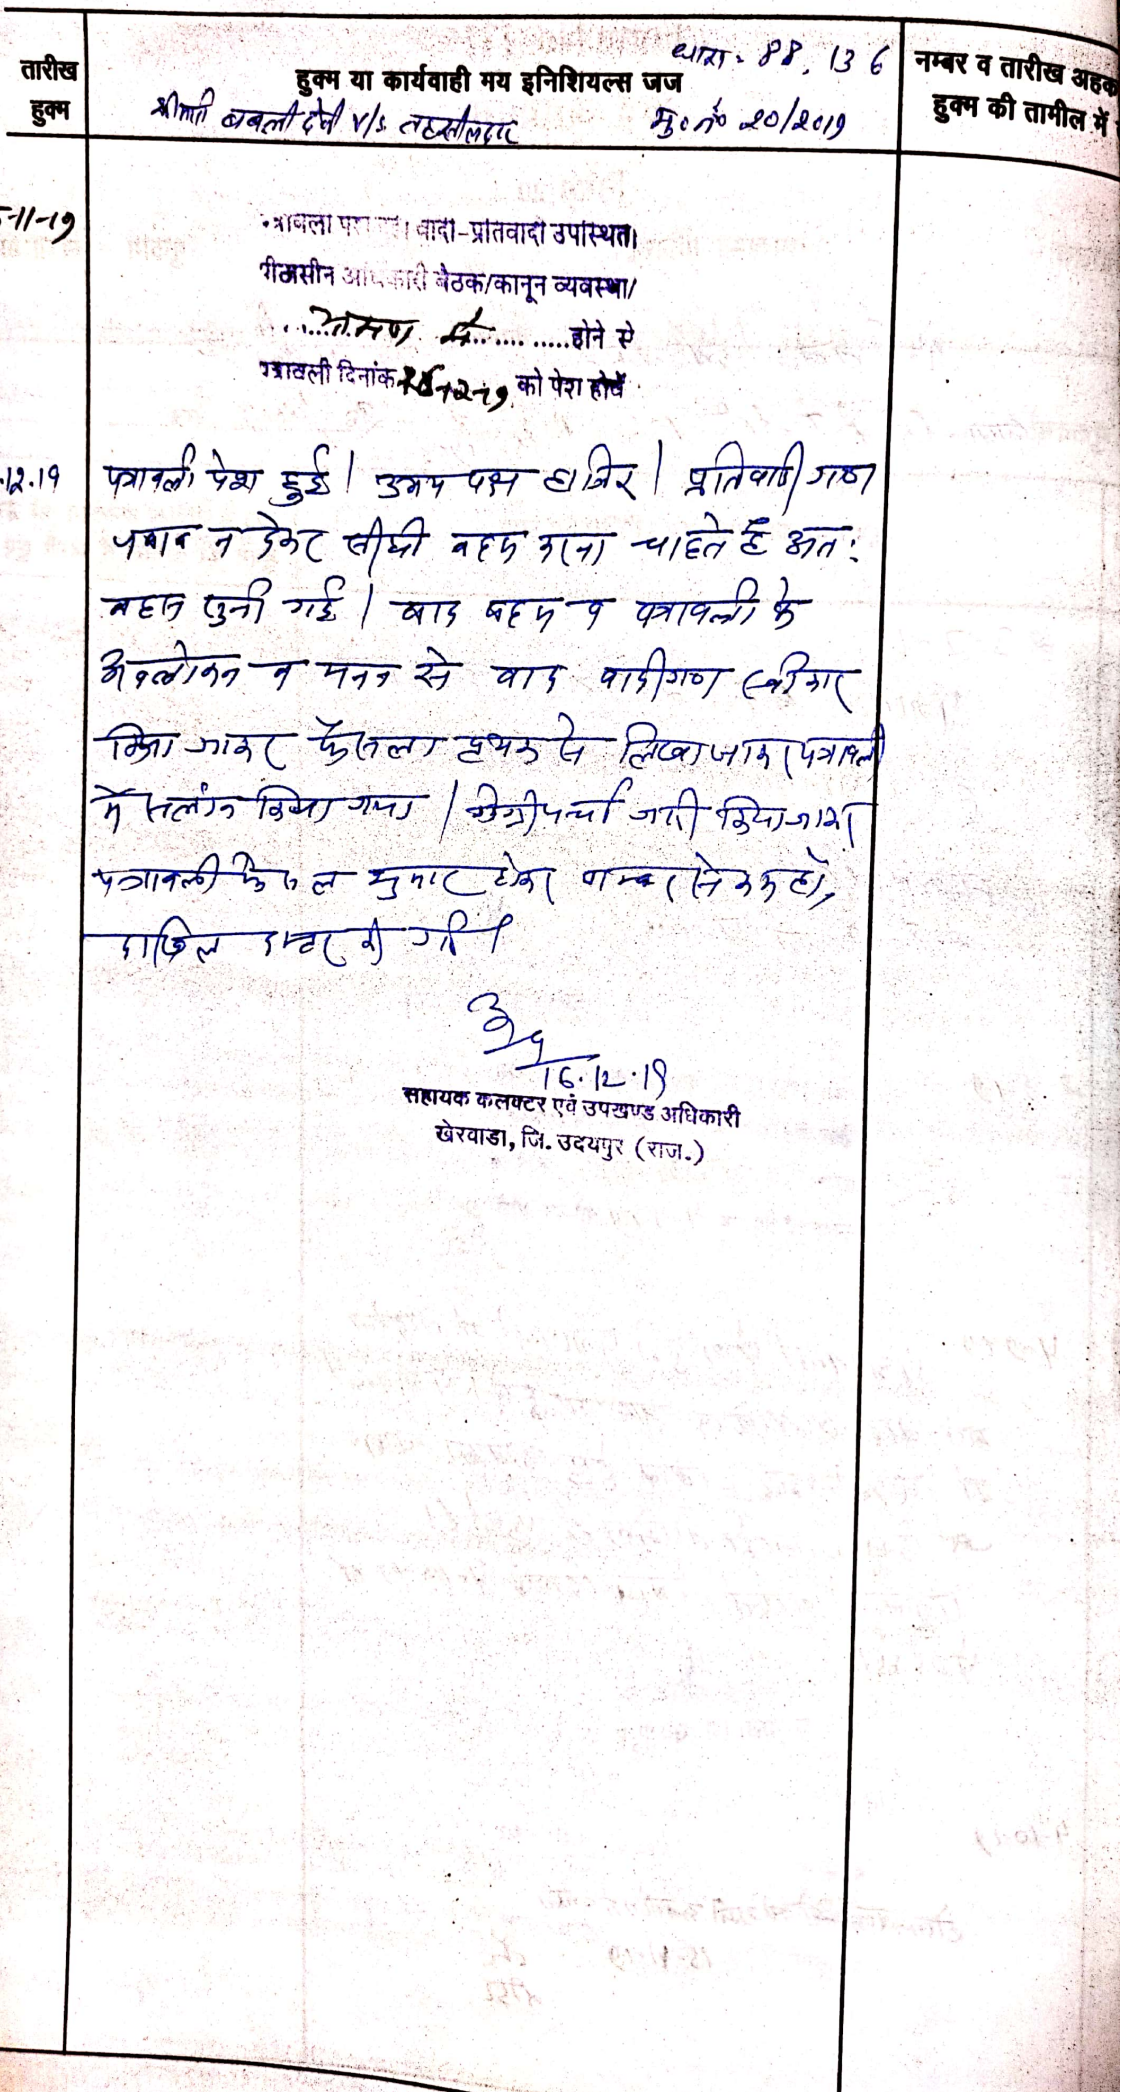 तारीख
हुक्म
हुक्म या कार्यवाही मय इनिशियल्स जज
धारा- 88, 136
श्रीमती बबली देवी v/s तहसीलदार
मु०नं० 20/2019
नम्बर व तारीख अहक
हुक्म की तामील में
-11-19
वादी-प्रतिवादी उपस्थित।
पीठासीन अधिकारी बैठक/कानून व्यवस्था/
......भ्रमण में.........होने से
पत्रावली दिनांक 16-12-19 को पेश होवें
.12.19
पत्रावली पेश हुई। उभय पक्ष हाजिर। प्रतिवादीगण
जवाब न देकर सीधी बहस करना चाहते है अत:
बहस सुनी गई। बाद बहस व पत्रावली के
अवलोकन व मनन से वाद वादीगण स्वीकार
किया जाकर फैसला पृथक से लिखा जाकर पत्रावली
में सलंग्न किया गया। डिग्री पर्चा जारी किया जाकर
पत्रावली फैसल शुमार होकर नम्बर से कम हो,
दाखिल दफ्तर की गई।
16.12.19
सहायक कलक्टर एवं उपखण्ड अधिकारी
खेरवाडा, जि. उदयपुर (राज.)